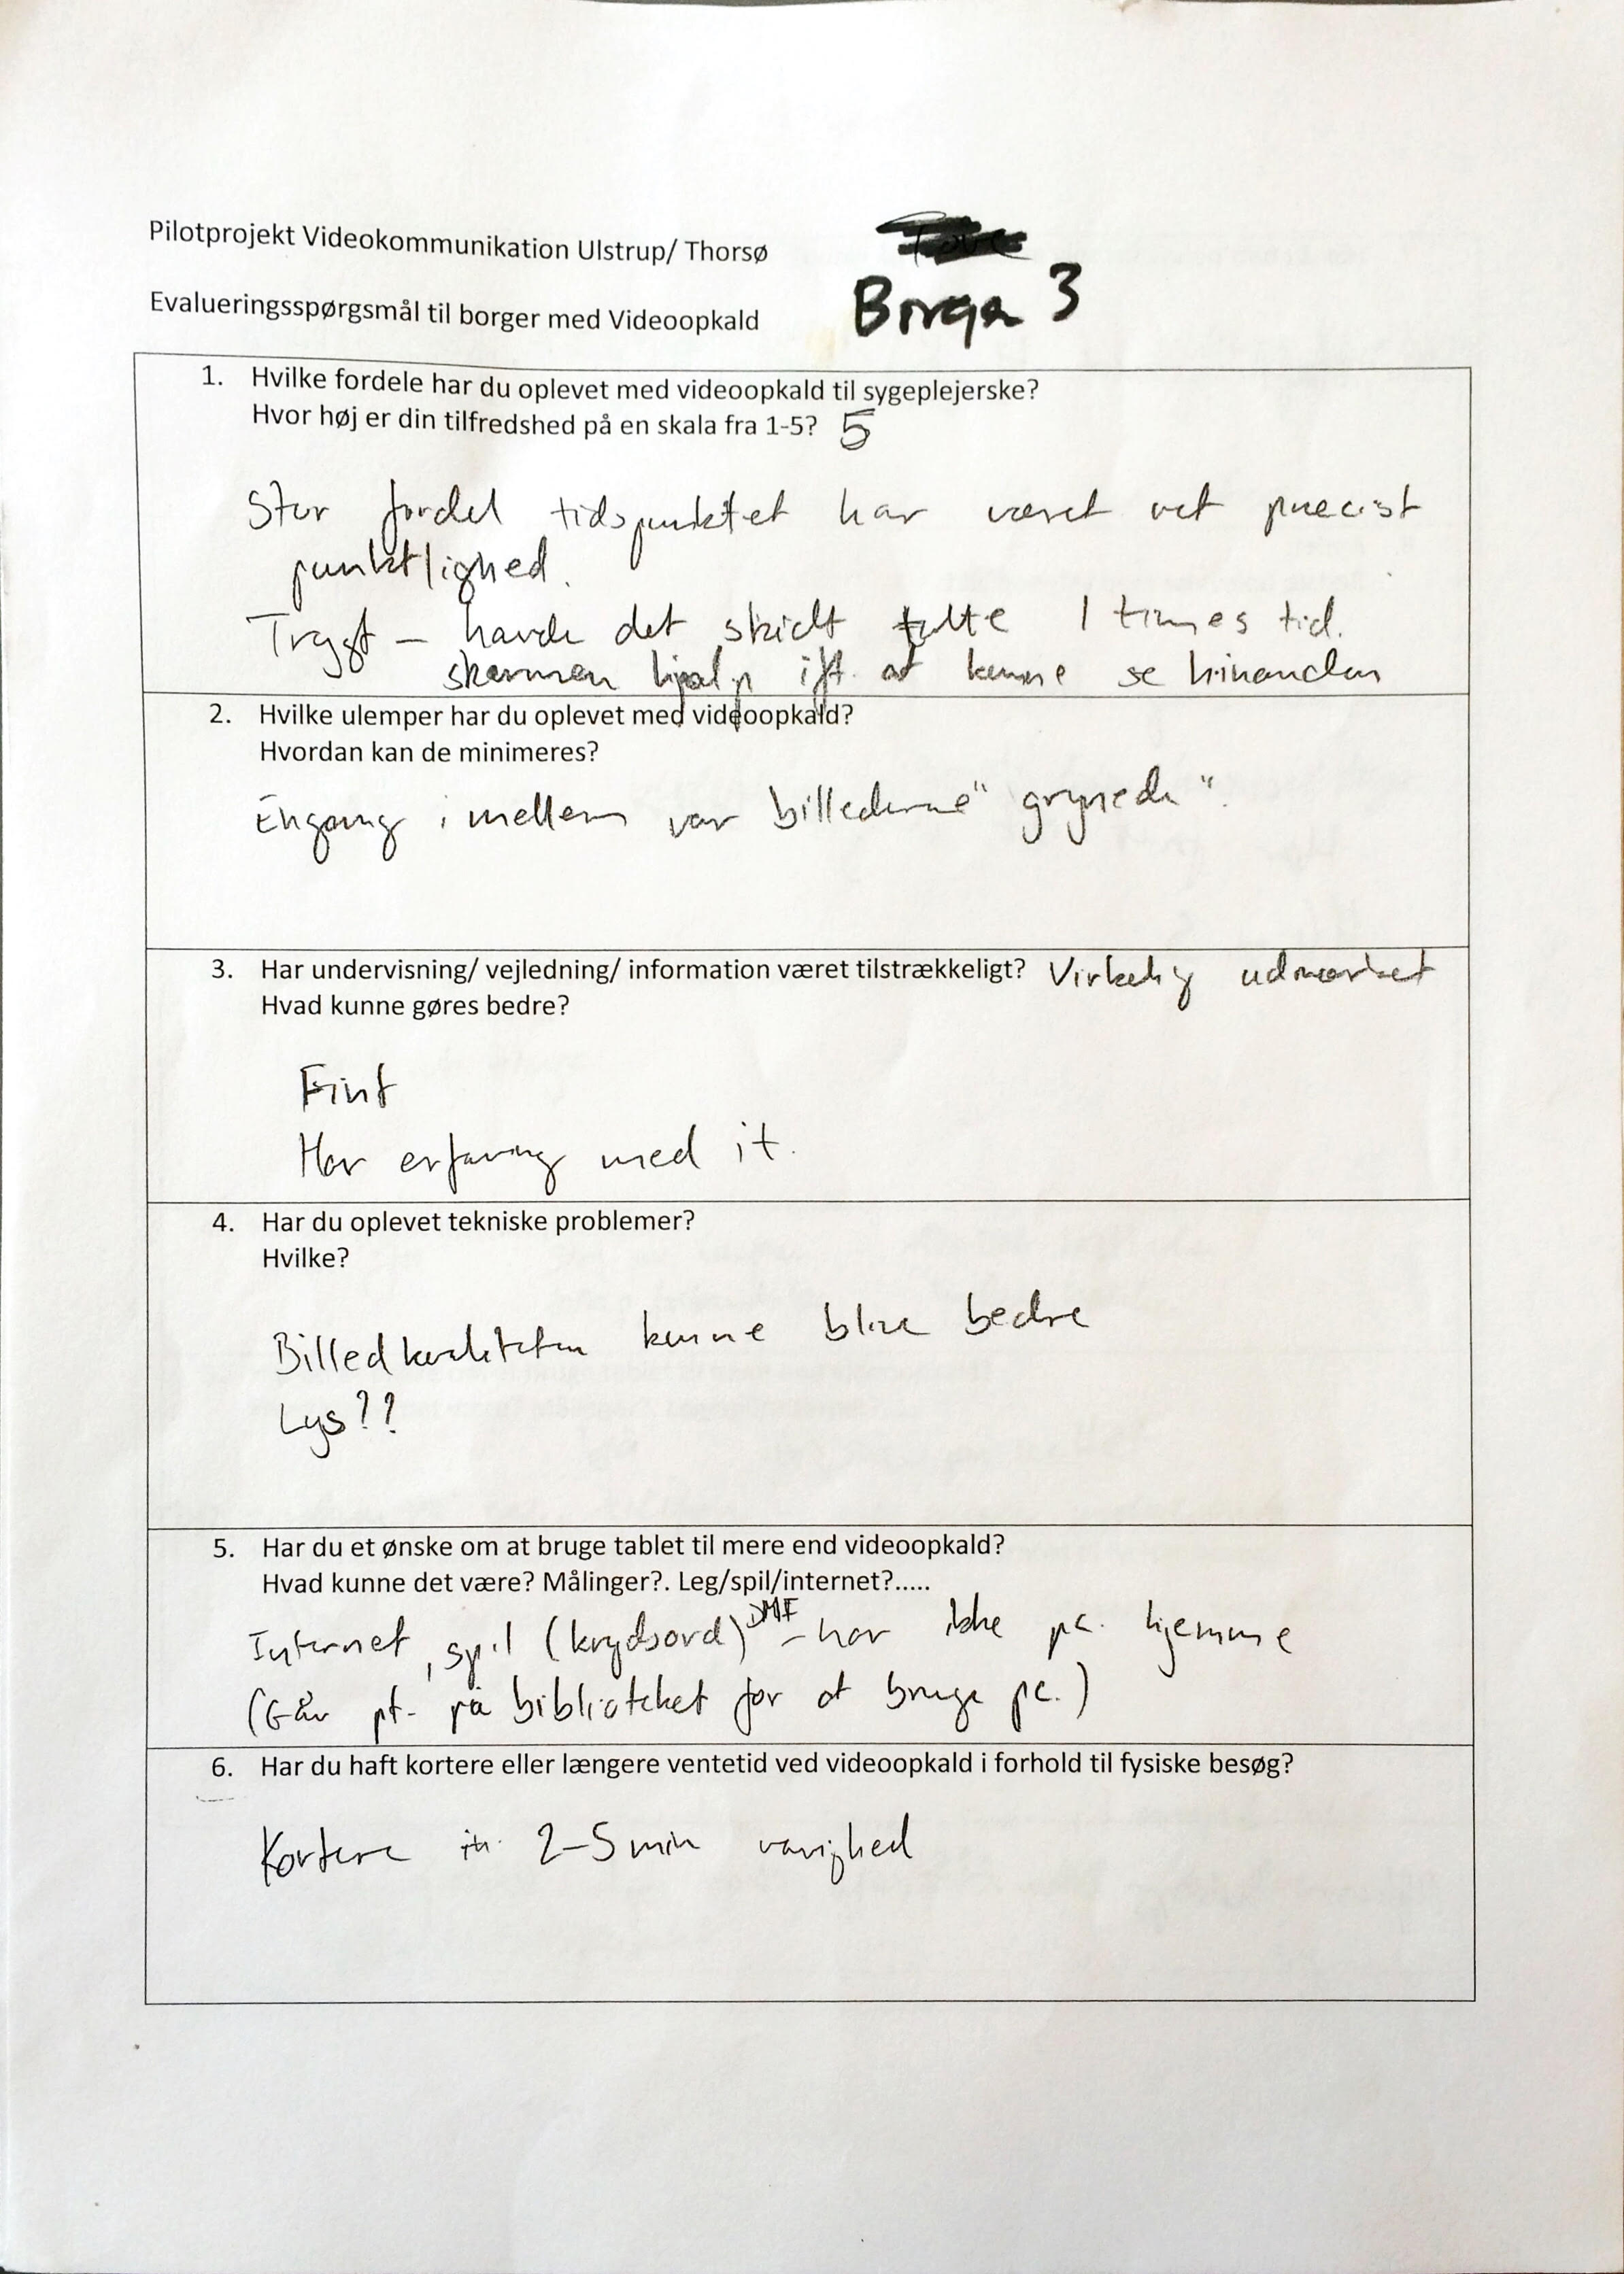 Pilotprojekt Videokommunikation Ulstrup/ Thorsø
Borger 3
Evalueringsspørgsmål til borger med Videoopkald
1. Hvilke fordele har du oplevet med videoopkald til sygeplejerske?
Hvor høj er din tilfredshed på en skala fra 1-5? 5
Stor fordel tidspunktet har været ret præcist
punktlighed.
Trygt - havde det skidt 1 times tid.
skærmen hjalp ift. at kunne se hinanden
2. Hvilke ulemper har du oplevet med videoopkald?
Hvordan kan de minimeres?
Engang imellem var billederne "grynede".
3. Har undervisning/ vejledning/ information været tilstrækkeligt? Virkelig udmærket
Hvad kunne gøres bedre?
Fint
Har erfaring med it.
4. Har du oplevet tekniske problemer?
Hvilke?
Billedkvaliteten kunne blive bedre
Lys??
5. Har du et ønske om at bruge tablet til mere end videoopkald?
Hvad kunne det være? Målinger?. Leg/spil/internet?.....
Internet, spil (krydsord) DMI - har ikke pc. hjemme
(Går pt. på biblioteket for at bruge pc.)
6. Har du haft kortere eller længere ventetid ved videoopkald i forhold til fysiske besøg?
Kortere 2-5 min varighed